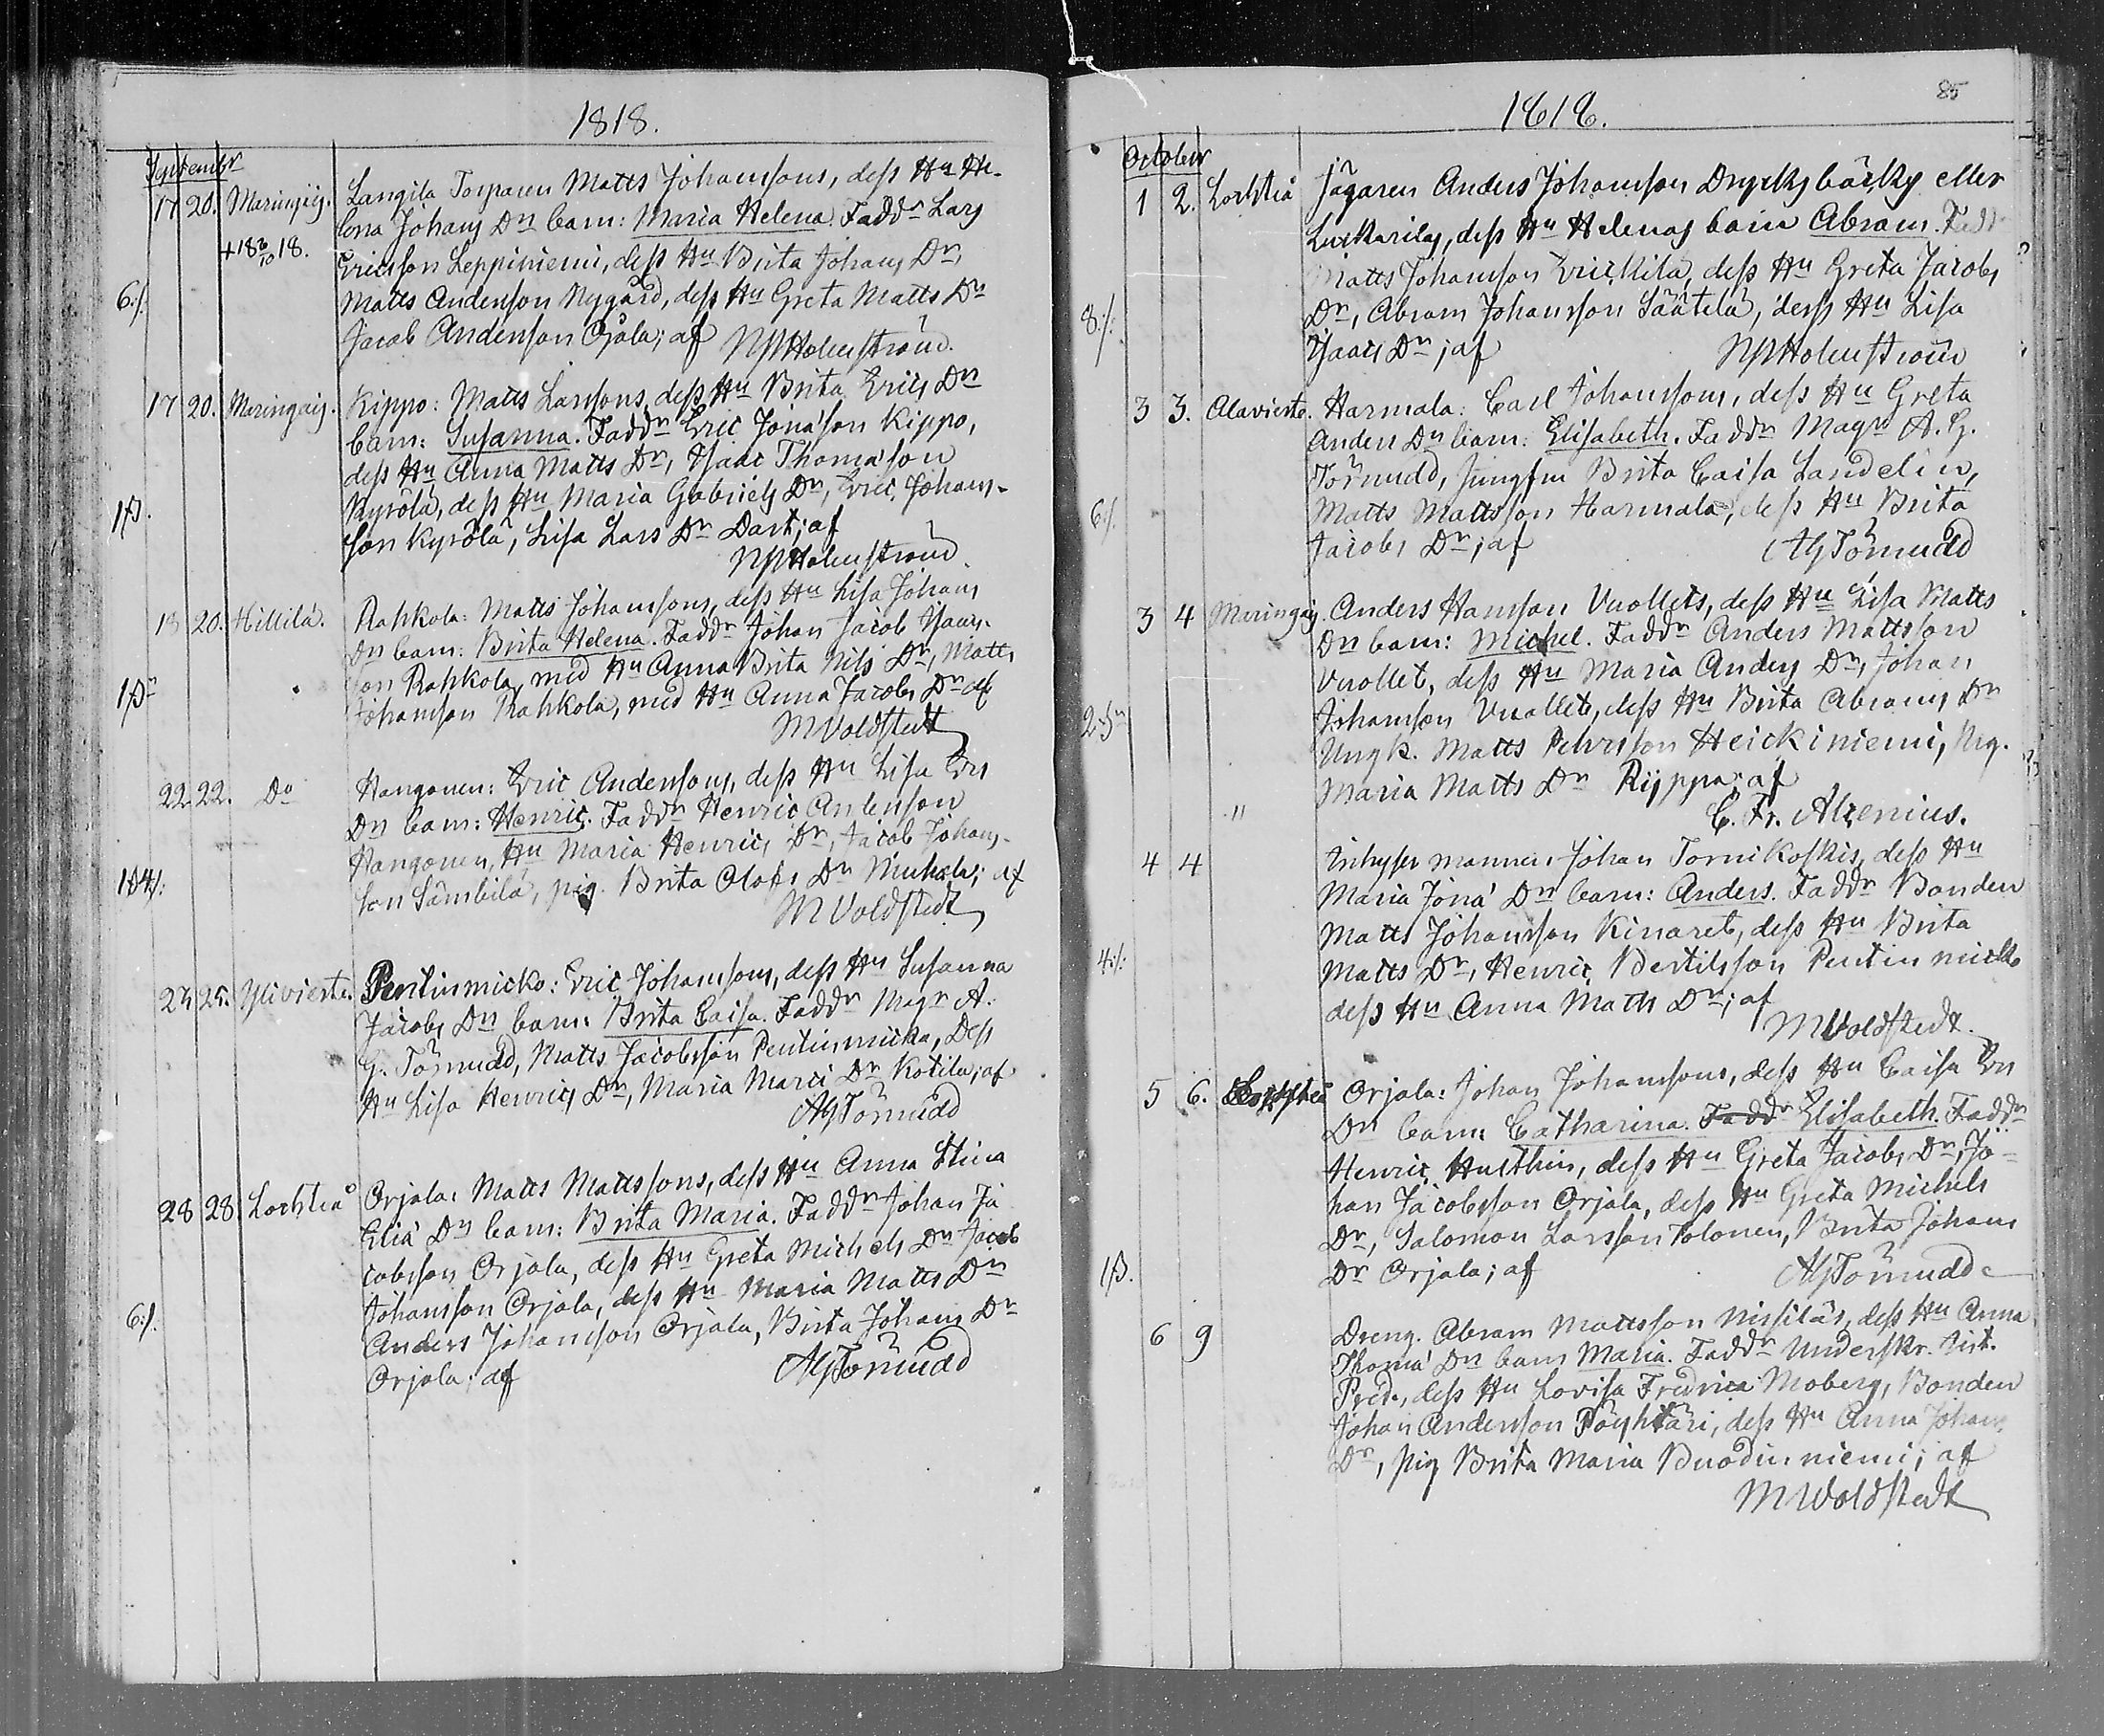 1818.
September
17 20. Maringais. Langila Torparen Matts Johanssons, dess Hu He-
+18 6/10 18. lena Johans Dr barn: Maria Helena. Faddr Lars
Ericsson Leppiniemi, dess Hu Brita Johans Dr,
6./. Matts Andersson Nygård, dess Hu Greta Matts Dr
Jacob Andersson Ojala; af NMHolmström.
17 20. Maringais. Kippo: Matts Larssons, dess Hu Brita Erics Dr
barn: Susanna. Faddr Eric Jonasson Kippo,
dess Hu Anna Matts Dr, Isaac Thomasson
Kyrölä, dess Hu Maria Gabriels Dr, Eric Johans-
son Kyrölä, Lisa Lars Dr Dart; af
NMHolmström
18 20. Hillilä. Rahkola: Matts Johanssons, dess Hu Lisa Johans
Dr barn: Brita Helena. Faddr Johan Jacob Isaacs-
son Rahkola, med Hu Anna Brita Nils Dr, Matts
Johansson Rahkola, med Hu Anna Jacobs Dr af
MVoldstedt
22 22. Do Hangonen: Eric Anderssons, dess Hu Lisa Ers
Dr barn: Henric. Faddr Henric Andersson
Hangonen, Hu Maria Henrics Dr, Jacob Johans-
son Sämbilä, pig. Brita Olofs Dr; af
MVoldstedt
23 25. Ylivieska. Pentinmicko: Eric Johanssons, dess Hu Susanna
Jacobs Dr barn: Brita Caisa. Faddr Magr A.
G. Törnudd, Matts Jacobsson Pentinmicko, Dess
Hu Lisa Henrics Dr, Maria Marci Dr Kotila; af
AGTörnudd
28 28. Lochteå Orjala: Matts Mattssons, dess Hu Anna Stina
Eliæ Dr barn: Brita Maria. Faddr Johan Ja
cobsson Orjala, dess Hu Greta Michels Dr Jacob
6./. Johansson Orjala, dess Hu Maria Matts Dr
Anders Johansson Orjala, Brita Johans Dr
Orjala; af AGTörnudd
85
1818.
October
1 2. Lochteå Jägaren Anders Johansson Drycksbäcks eller
Luckarilas, dess Hu Helenas barn Abram. Faddr
Matts Johansson Erickilä, dess Hu Greta Jacobs
8./. Dr, Abram Johansson Säätelä, dess Hu Lisa
Isaacs Dr; af NMHolmström
3 3. Alavieska. Harmala: Carl Johanssons, dess Hu Greta
Anders Dr barn: Elisabeth. Faddr Magr A. G.
Törnudd, Jungfru Brita Caisa Landelin,
6./. Matts Mattsson Harmala, dess Hu Brita
Jacobs Dr; af AGTörnudd
3 4 Maringais. Anders Hansson Vuollets, dess Hu Lisa Matts
Dr barn: Michel. Faddr Anders Mattsson
Vuollet, dess Hu Maria Anders Dr, Johan
Johansson Vuollet, dess Hu Brita Abrams Dr
Ungk. Matts Pehrsson Heickiniemi, Pig.
Maria Matts Dr Rijppa; af
" C. Fr. Alcenius.
4 4 Inhyses mannen Johan Tornikoskis, dess Hu
Maria Jonæ Dr barn: Anders. Faddr Bonden
Matts Johansson Kinaret, dess Hu Brita
4./. Matts Dr, Henric Bertilsson Pentinmicko
dess Hu Anna Matts Dr; af
MVoldstedt.
5 6. Lochteå Orjala: Johan Johanssons, dess Hu Caisa Ers
Dr barn: Catharina. Faddr Elisabeth. Faddr
Henric Hulthin, dess Hu Greta Jacobs Dr, Jo-
han Jacobsson Orjala, dess Hu Greta Michels
Dr, Salomon Larsson Tolonen, Brita Johans
Dr Orjala; af AGTörnudd
6 9 Dreng. Abram Mattsson Nissiläs, dess Hu Anna
Thomæ Dr barn Maria. Faddr Underskr. Vist.
Pred., dess Hu Lovisa Fredrica Moberg, Bonden
Johan Andersson Pöyhtäri, dess Hu Anna Johans
Dr, pig Brita Maria; af
MVoldstedt